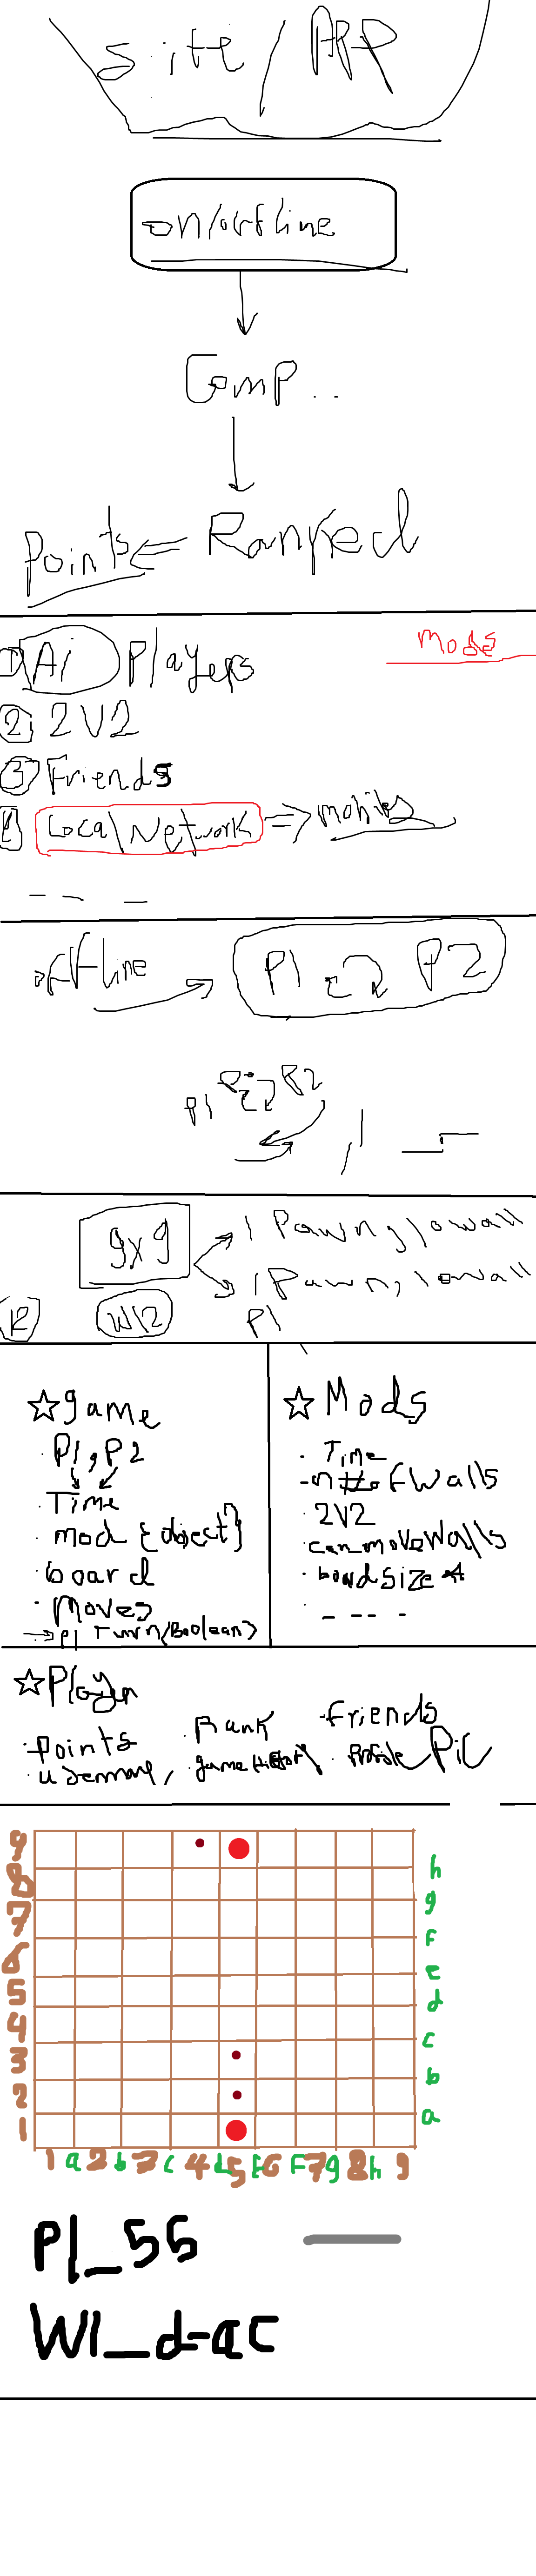 site / APP
on/offline
Comp..
Points Ranked
Mods
1 Ai Players
2 2V2
3 Friends
4 Local Network => mobiles
offline P1 P2
P1 P2
9x9
1 Pawn, 10wall
1 Pawn, 10wall
W12
P1
☆ game
· P1, P2
· Time
· mod {object}
· board
· Moves
→ P1 Turn (Boolean)
☆ Mods
- Time
- n# of Walls
· 2V2
· can_move walls
· board size
- - - -
☆ Player
· Points
· Rank
· friends
· username,
· game History
· Profile Pic
9
8
7
6
5
4
3
2
1
h
g
f
e
d
c
b
a
1 a 2 b 3 c 4 d 5 E 6 F 7 g 8 h 9
P1_55
W1_d-ac